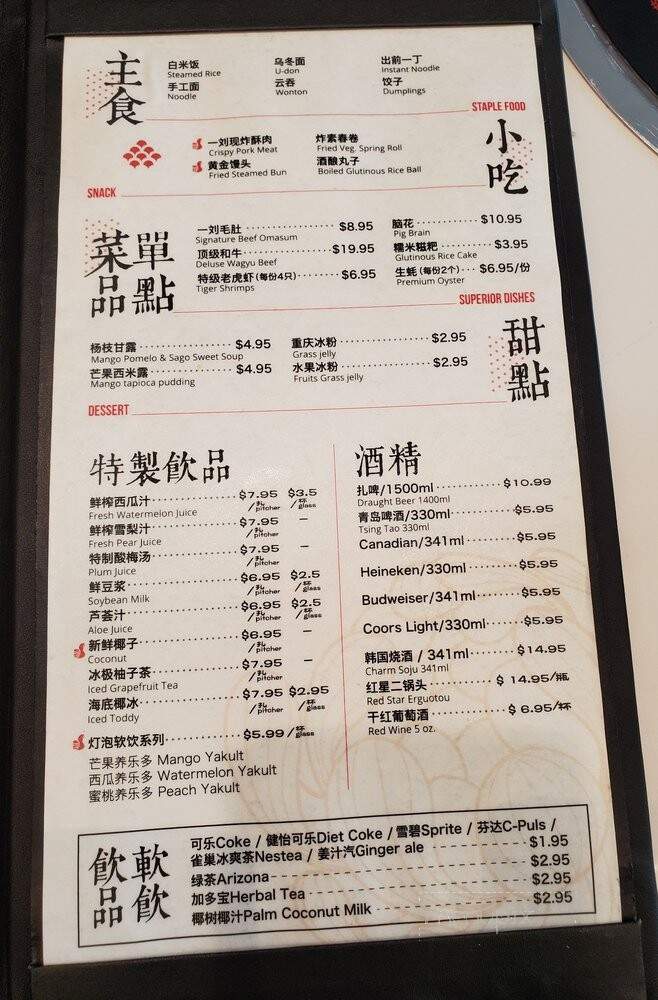 主食
白米饭 乌冬面 出前一丁
Steamed Rice U-don Instant Noodle
手工面 云吞 饺子
Noodle Wonton Dumplings
STAPLE FOOD
小吃
一刘现炸酥肉 炸素春卷
Crispy Pork Meat Fried Veg. Spring Roll
黄金馒头 酒酿丸子
Fried Steamed Bun Boiled Glutinous Rice Ball
SNACK
單點菜品
一刘毛肚 $8.95 脑花 $10.95
Signature Beef Omasum Pig Brain
顶级和牛 $19.95 糯米糍粑 $3.95
Deluse Wagyu Beef Glutinous Rice Cake
特级老虎虾(每份4只) $6.95 生蚝(每份2个) $6.95/份
Tiger Shrimps Premium Oyster
SUPERIOR DISHES
甜點
杨枝甘露 $4.95 重庆冰粉 $2.95
Mango Pomelo & Sago Sweet Soup Grass jelly
芒果西米露 $4.95 水果冰粉 $2.95
Mango tapioca pudding Fruits Grass jelly
DESSERT
特製飲品
鲜榨西瓜汁 $7.95/扎 pitcher $3.5/杯 glass
Fresh Watermelon Juice
鲜榨雪梨汁 $7.95/扎 pitcher –
Fresh Pear Juice
特制酸梅汤 $7.95/扎 pitcher –
Plum Juice
鲜豆浆 $6.95/扎 pitcher $2.5/杯 glass
Soybean Milk
芦荟汁 $6.95/扎 pitcher $2.5/杯 glass
Aloe Juice
新鲜椰子 $6.95/扎 pitcher –
Coconut
冰极柚子茶 $7.95/扎 pitcher –
Iced Grapefruit Tea
海底椰冰 $7.95/扎 pitcher $2.95/杯 glass
Iced Toddy
灯泡软饮系列 $5.99/杯 glass
芒果养乐多 Mango Yakult
西瓜养乐多 Watermelon Yakult
蜜桃养乐多 Peach Yakult
酒精
扎啤/1500ml $10.99
Draught Beer 1400ml
青岛啤酒/330ml $5.95
Tsing Tao 330ml
Canadian/341ml $5.95
Heineken/330ml $5.95
Budweiser/341ml $5.95
Coors Light/330ml $5.95
韩国烧酒 / 341ml $14.95
Charm Soju 341ml
红星二锅头 $ 14.95/瓶
Red Star Erguotou
干红葡萄酒 $ 6.95/杯
Red Wine 5 oz.
軟飲飲品
可乐Coke / 健怡可乐Diet Coke / 雪碧Sprite / 芬达C-Puls /
雀巢冰爽茶Nestea / 姜汁汽Ginger ale $1.95
绿茶Arizona $2.95
加多宝Herbal Tea $2.95
椰树椰汁Palm Coconut Milk $2.95